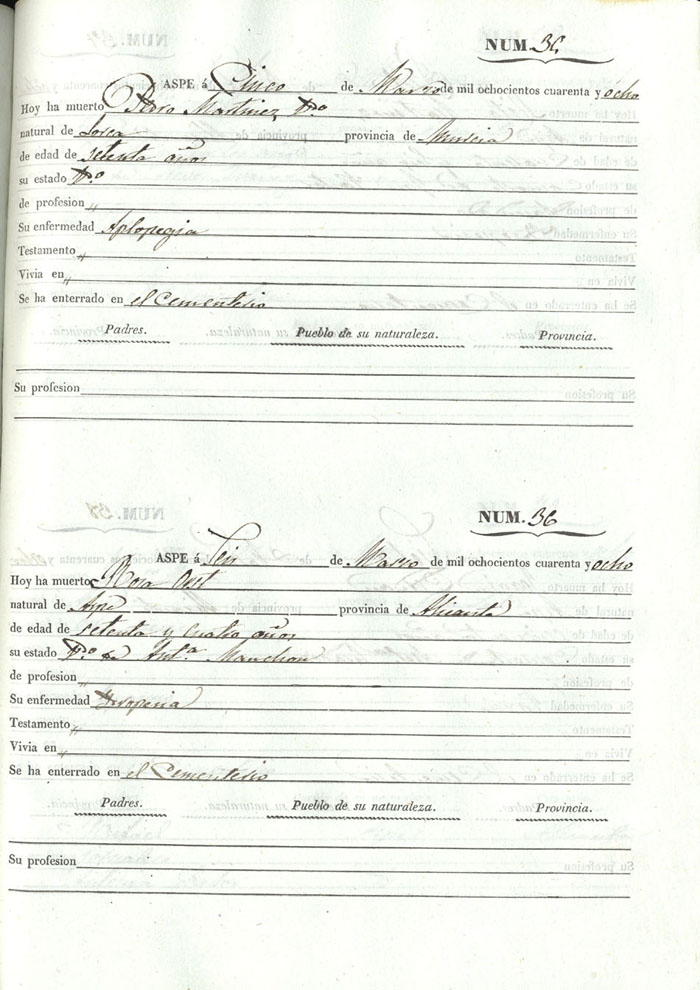 NUM. 36
ASPE á Cinco de Marzo de mil ochocientos cuarenta y ocho
Hoy ha muerto Pedro Martinez V.do
natural de Lorca provincia de Murcia
de edad de setenta años
su estado V.do
de profesion „
Su enfermedad Aplopegia
Testamento „
Vivia en „
Se ha enterrado en el Cementerio
Padres. Pueblo de su naturaleza. Provincia.
Su profesion
NUM. 36
ASPE á Seis de Marzo de mil ochocientos cuarenta y ocho
Hoy ha muerto Rosa
natural de Aspe provincia de Alicante
de edad de setenta y cuatro años
su estado de Ant.a Manchon
de profesion „
Su enfermedad
Testamento „
Vivia en „
Se ha enterrado en el Cementerio
Padres. Pueblo de su naturaleza. Provincia.
Su profesion